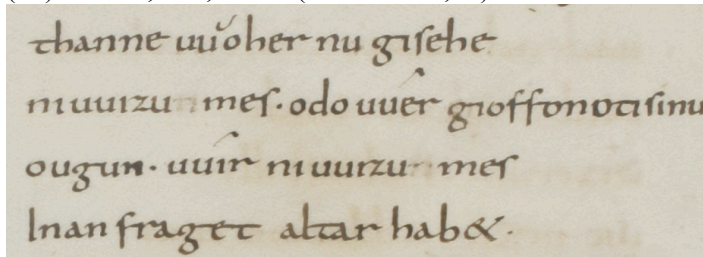 thanne uuoher nu gisehe
ni uuizu mes· odo uuer gioffonoti sinu
ougun· uuir ni uuizu mes
Inan fraget altar hab&·